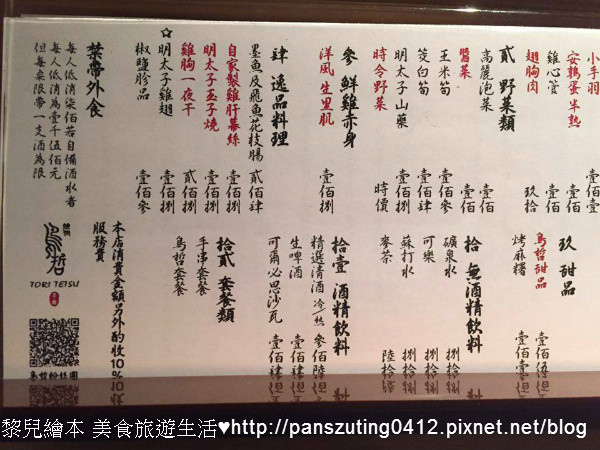 小手羽
安鶉蛋半熟 壹佰壹
雞心管 壹佰
翅胸肉 玖拾
貳 野菜類
高麗泡菜 壹佰
醬菜 壹佰
玉米筍 壹佰參
筊白筍 壹佰捌
明太子山藥 壹佰捌
時令野菜 時價
參 鮮雞赤身
洋風生里肌 壹佰捌
肆 逸品料理
墨魚及飛魚花枝腸 貳佰肆
自家製雞肝慕絲 壹佰捌
明太子玉子燒 壹佰捌
雞胸一夜干 貳佰捌
☆明太子雞翅 壹佰捌
椒鹽胗品 壹佰參
禁帶外食
每人低消柒佰若自備酒水者
每人低消為壹千伍佰元
但每桌限帶一支酒為限
玖 甜品
鳥哲甜品 壹佰伍
烤麻糬 壹佰壹
拾 無酒精飲料
礦泉水 捌拾
可樂 捌拾
蘇打水 捌拾
麥茶 陸拾
拾壹 酒精飲料
精選清酒 冷/熱 參佰陸
生啤酒 壹佰肆
可爾必思沙瓦 壹佰肆
拾貳 套餐類
手串套餐
鳥哲套餐
本店消費金額另外酌收10%
服務費
燒鳥
鳥哲
TORI TETSU
黎兒繪本 美食旅遊生活♥http://panszuting0412.pixnet.net/blog